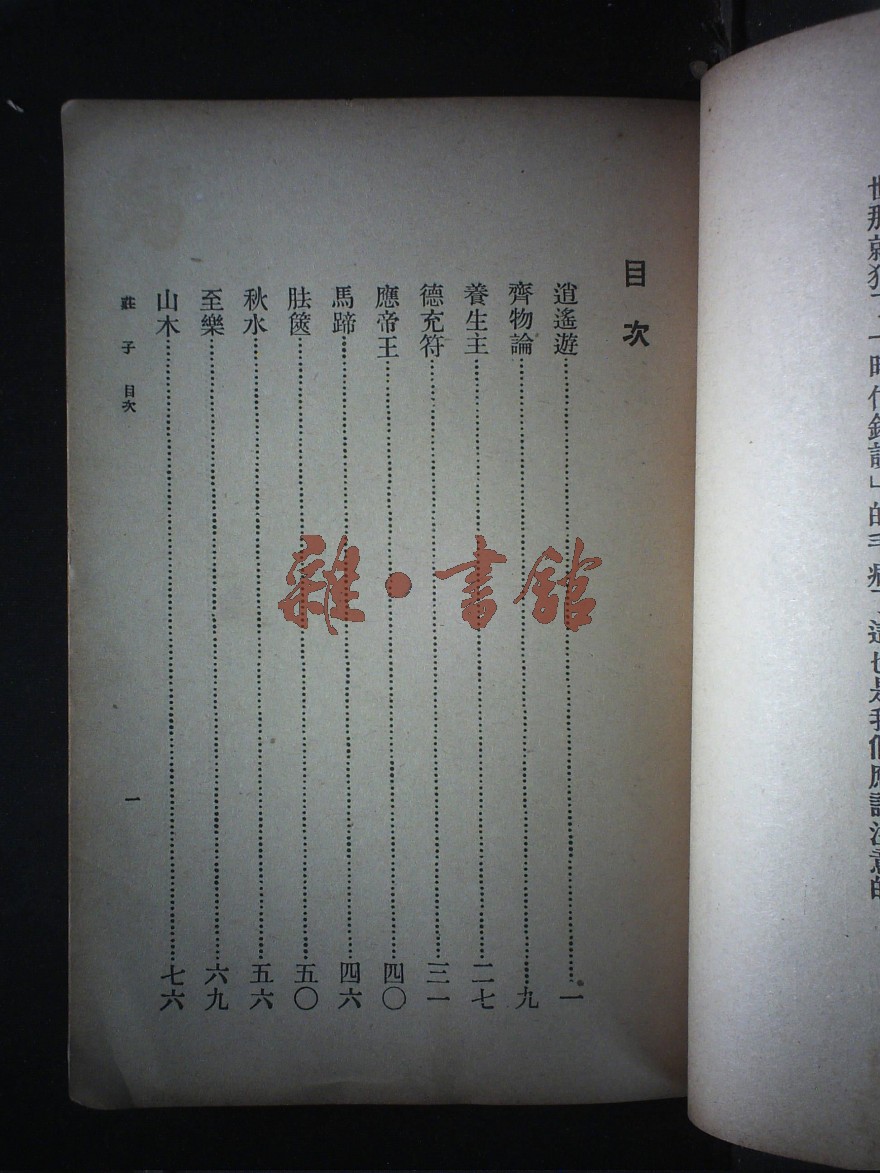 世那就犯了「時代錯誤」的毛病了這也是我們應該注意的
目次
逍遙遊一
齊物論九
養生主二七
德充符三一
應帝王四〇
馬蹄四六
胠篋五〇
秋水五六
至樂六九
山木七六
莊子 目次
一
雜·書館